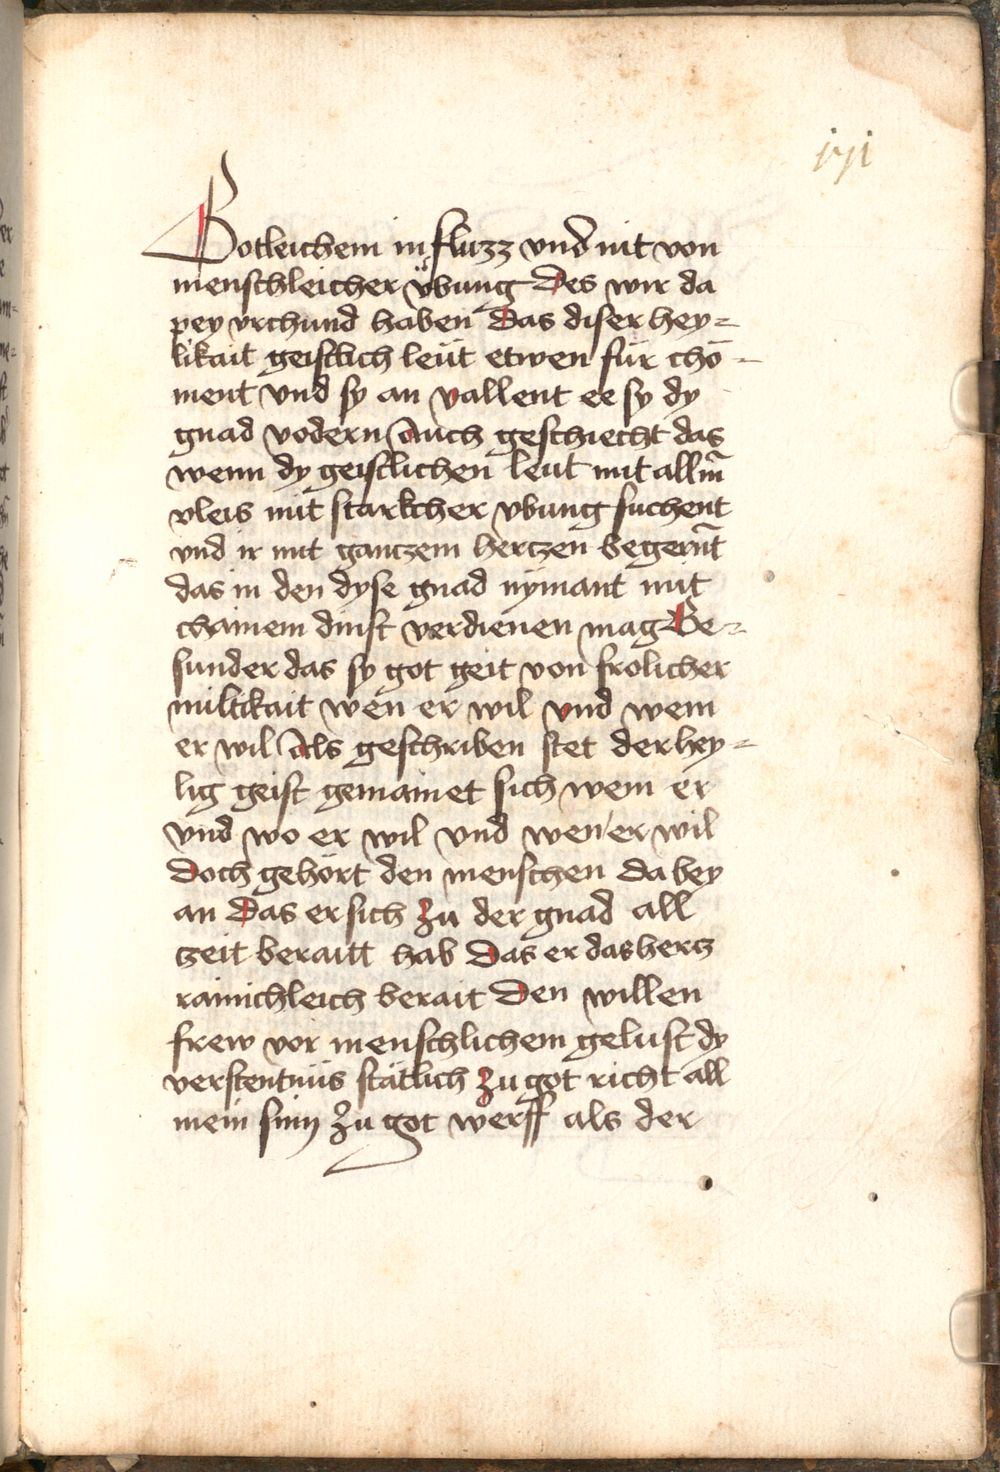 ivi
Gotleichem influzz vnd nit von
menschleicher vͤbung Des wir da
pey vrchund haben Das diser hey=
likait geistlich leüt etwen für chö=
ment Vnd sy an vallent ee sy dy
gnad vodern Auch geschiecht das
wenn dy geistlichen leüt mit allm̄
vleis mit starkcher vbung suchent
vnd ir mit ganczem herczen begernt̄
das in den dyse gnad nÿmant mit
chainem dinst verdienen mag Be=
sunder das sy got geit von frolicher
miltikait wen er wil vnd wem
er wil Als geschriben stet der hey=
lig geist gemainet sich wem er
Vnd wo er wil Vnd wen er wil
Doch gehört den menschen da bey
an Das er sich Zu der gnad all
zeit beraitt hab Das er das hercz
rainichleich berait Den willen
frew vor menschlichem gelust dy
verstentnüs stätlich Zu got richt all
mein sinn Zu got werff als der